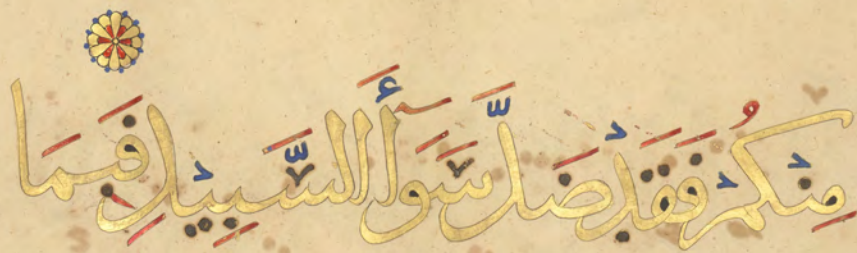 مِنْكُمْ فَقَدْ ضَلَّ سَوَآءَ السَّبِيلِ فَبِمَا